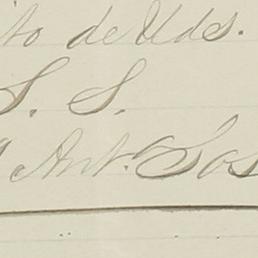 to de Uds.
S. S.
Ant.º Sos